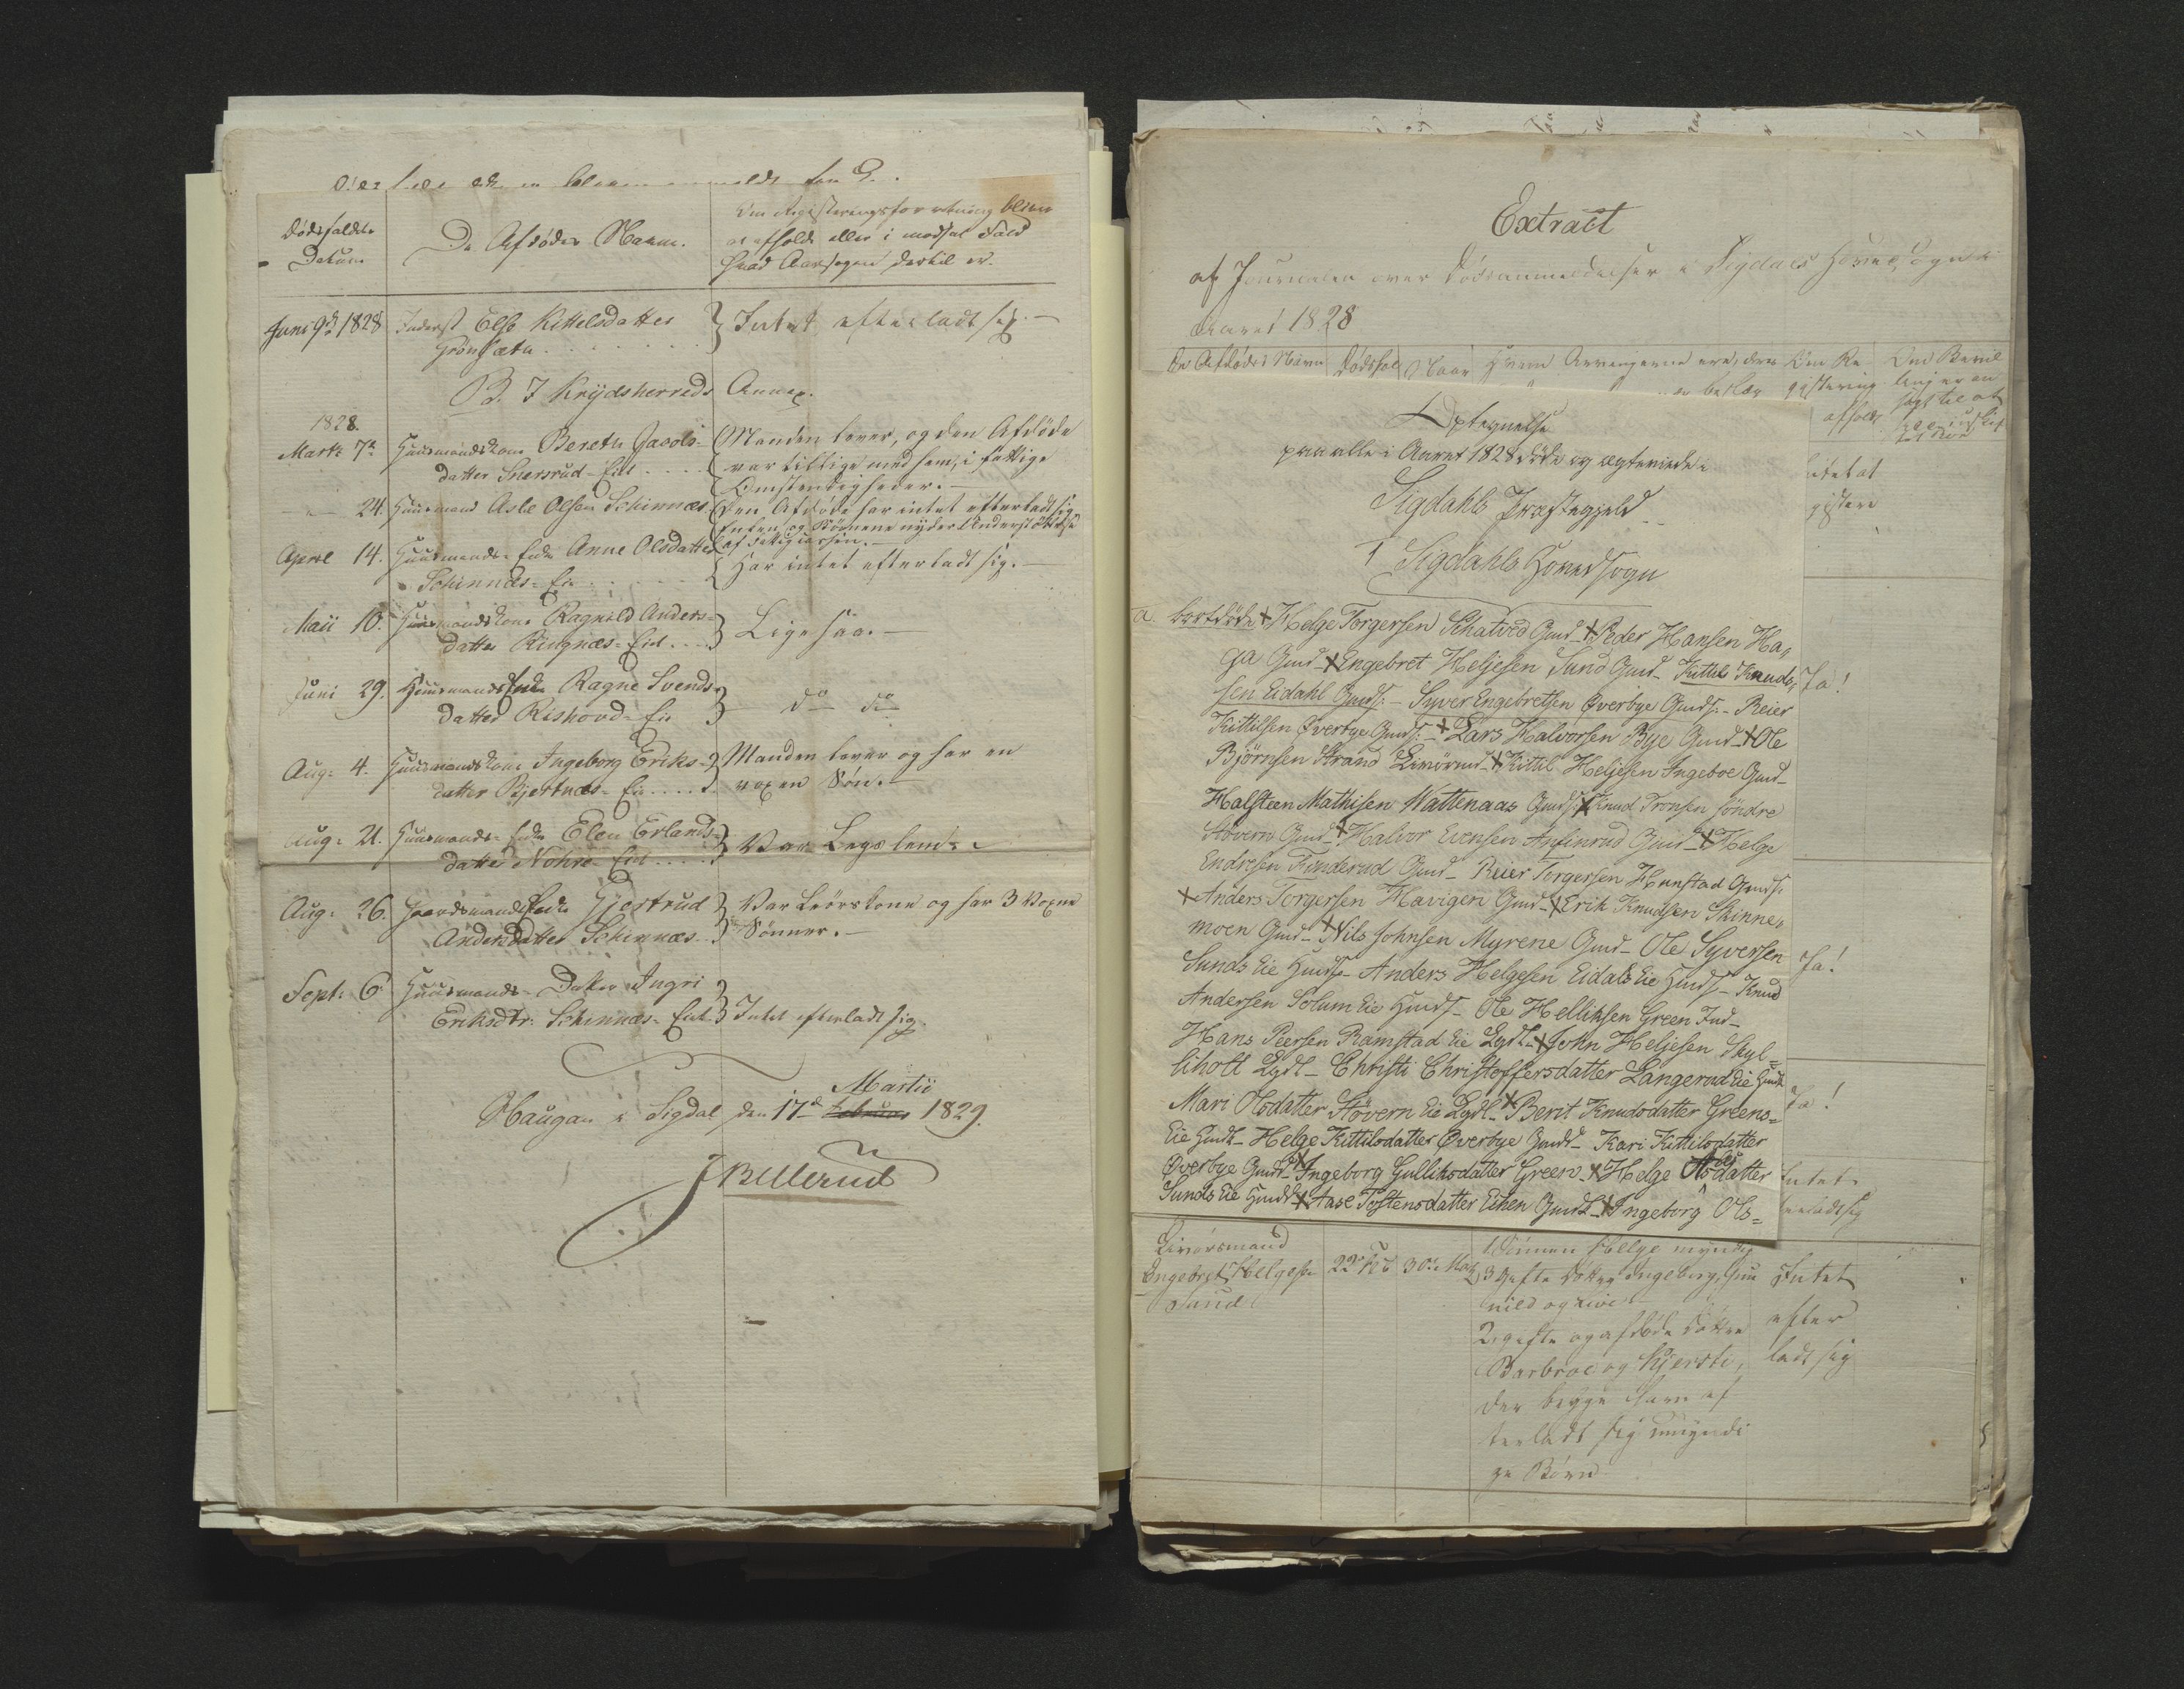 Dødsfaldets
Datum
De Afdødes Navne.
Om Registeringsforretning bliver
at afholde eller i modsat Fald
hvad Aarsagen dertil er.
Juni 9de 1828 Inderst Else Kittelsdatter
Grønsæte
Intet efterladt sig.—
B. I Krydsherreds Annex.
1828.
Marts 7de Huusmandskone Berethe Jacobs-
datter Snersrud-Eiet
Manden lever, og den Afdøde
var tillige med ham i fattige
Omstendigheder.—
— 24. Huusmand Asle Olsen Schinnæs
Den Afdøde har intet efterladt sig
Enken og Börnene nyder Understöttelse
af Fattigcassen.—
April 14. Huusmands-Enke Anne Olsdatter
Schinnæs-Eie
Har intet efterladt sig.—
Maii 10. Huusmandskone Ragnild Anders-
datter Ringnæs-Eiet
Ligesaa.—
Juni 29. HuusmandsEnke Ragne Svends-
datter Rishovd-Eie
do do
Aug: 4. Huusmandskone Ingeborg Eriks-
datter Bjertnæs-Eie
Manden lever og har en
voxen Søn.—
Aug: 21. Huusmands-Enke Elen Erlands-
datter Nohre-Eiet
Var Lægslem
Aug: 26. GaardmandsEnke Gjertrud
Andersdatter Schinnæs
Var Föderkone og har 3 Voxne
Sönner.—
Sept: 6 Huusmands-Datter Ingri
Eriksdtr: Schinnæs-Eiet
Intet efterladt sig.
Martii
Haugan i Sigdal, den 17de Februar 1829.
J Bellerud
Extract
af Journalen over Dödsanmeldelser i Sigdals Hoved Sogn i
Aaret 1828
De Afdødes Navn Dödsfal Naar Hvem Arvingerne ere, deres Om Re Om Bevil
gistering ling er an
afholdt sögt til at
Optegnelse
paa alle i Aaret 1828 døde og ægteviede i
Sigdahls Præstegjeld
1 Sigdahls Hovedsogn
a. bortdöde + Helge Torgersen Schatved Gmd - + Peder Hansen Ha,,
ga Gmd - + Engebret Heljesen Sund Gmd - Kittil Knud,,
sen Eidahl Gmds: - Syver Engebretsen Øverbye Gmds: - Reier
Kittilsen Øverbye Gmds: - + Lars Halvorsen Bye Gmd - + Ole
Björnsen Strand - + Kittil Heljesen Ingeboe Gmd -
Halsteen Mathisen Wattenaas Gmds: + Knud Tronsen söndre
Stövern Gmd - + Halvor Evensen Anfinrud Gmd - + Helge
Endresen Finderud Gmd - Reier Torgersen Hunstad Gmds:
+ Anders Torgersen Havigen Gmd - + Erik Knudsen Skinne,,
moen Gmd - + Nils Johnsen Myrene Gmd - Ole Syversen
Sunds Eie Hmds - Anders Helgesen Eidals Eie Hmds - Knud
Andersen Solum Eie Hmds - Ole Helliksen Green Ind -
Hans Peersen Ramstad Eie Lgdl - + John Heljesen Skyl=
liholt Lgdl - Christi Christoffersdatter Langerud Eie Hmdk
Mari Olsdatter Stövern Eie Lgdl - + Berit Knudsdatter Greens=
Eie Hmdk - Helge Kittilsdatter Øverbye Gmdd - Kari Kittilsdatter
Øverbye Gmdd - + Ingeborg Gulliksdatter Green - + Helge Olsdatter
Sunds Eie Hmdd - + Aase Tostensdatter Eken Gmdk - + Ingeborg Ols=
Ja!
Ja!
Ja!
Intet
efterladt sig
Livörsmand
Engebret Helgesen
Sund
22de 30te
1 Sönnen Helge myndig
3 gifte Döttre Ingeborg, Gun
nild og
2 gifte og afdöde Döttre
Barbroe og Kjersti,
der begge have ef
terladt sig umyndi
ge Börn
Intet
efter
ladt sig